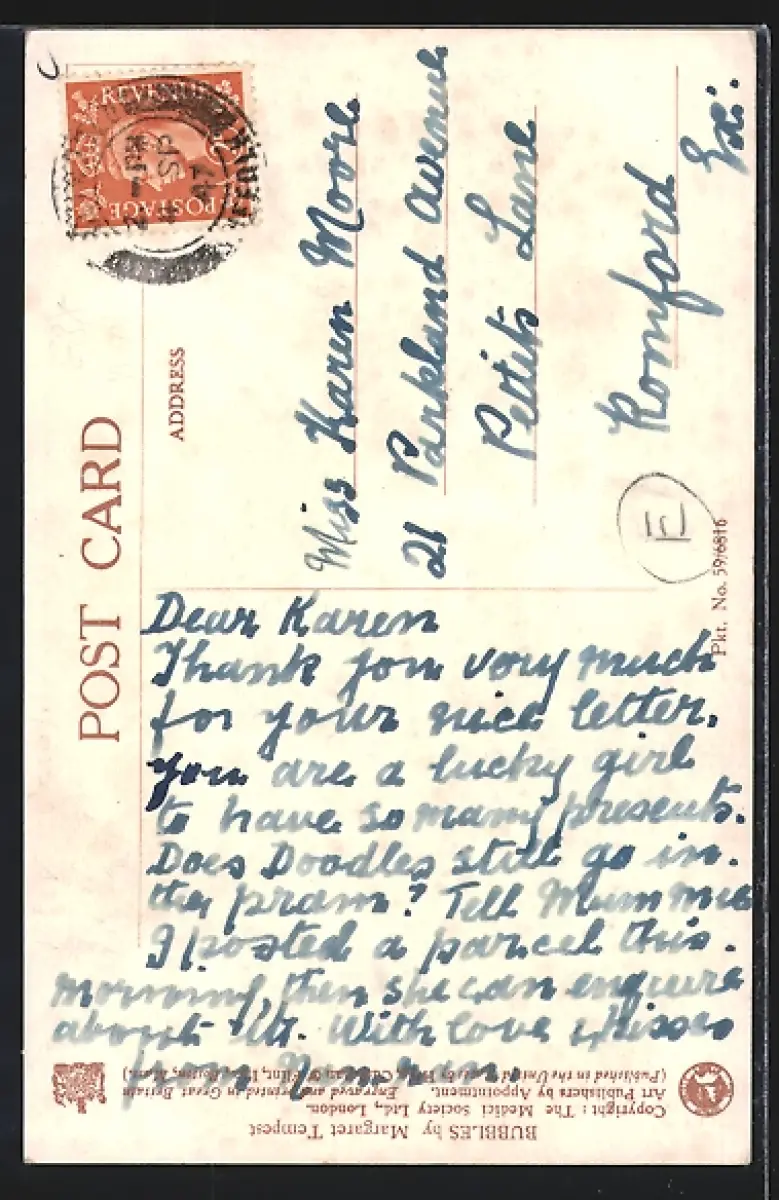 POST CARD
ADDRESS
REVENUE
POSTAGE
SP
47
Miss Karen Moore
21 Parkland Avenue
Pettits Lane
Romford
Ex:
E
Pkt. No. 59/6816
Dear Karen
Thank you very much
for your nice letter.
You are a lucky girl
to have so many presents.
Does Doodles still go in.
the pram? Tell Mummie
I posted a parcel this.
morning, then she can enquire
about it. With love & kisses
from
BUBBLES by Margaret Tempest
Copyright : The Medici Society Ltd., London.
Art Publishers by Appointment. Engraved and Printed in Great Britain
(Published in the United States by Hale, Cushman & Flint, Inc., Boston, Mass.)